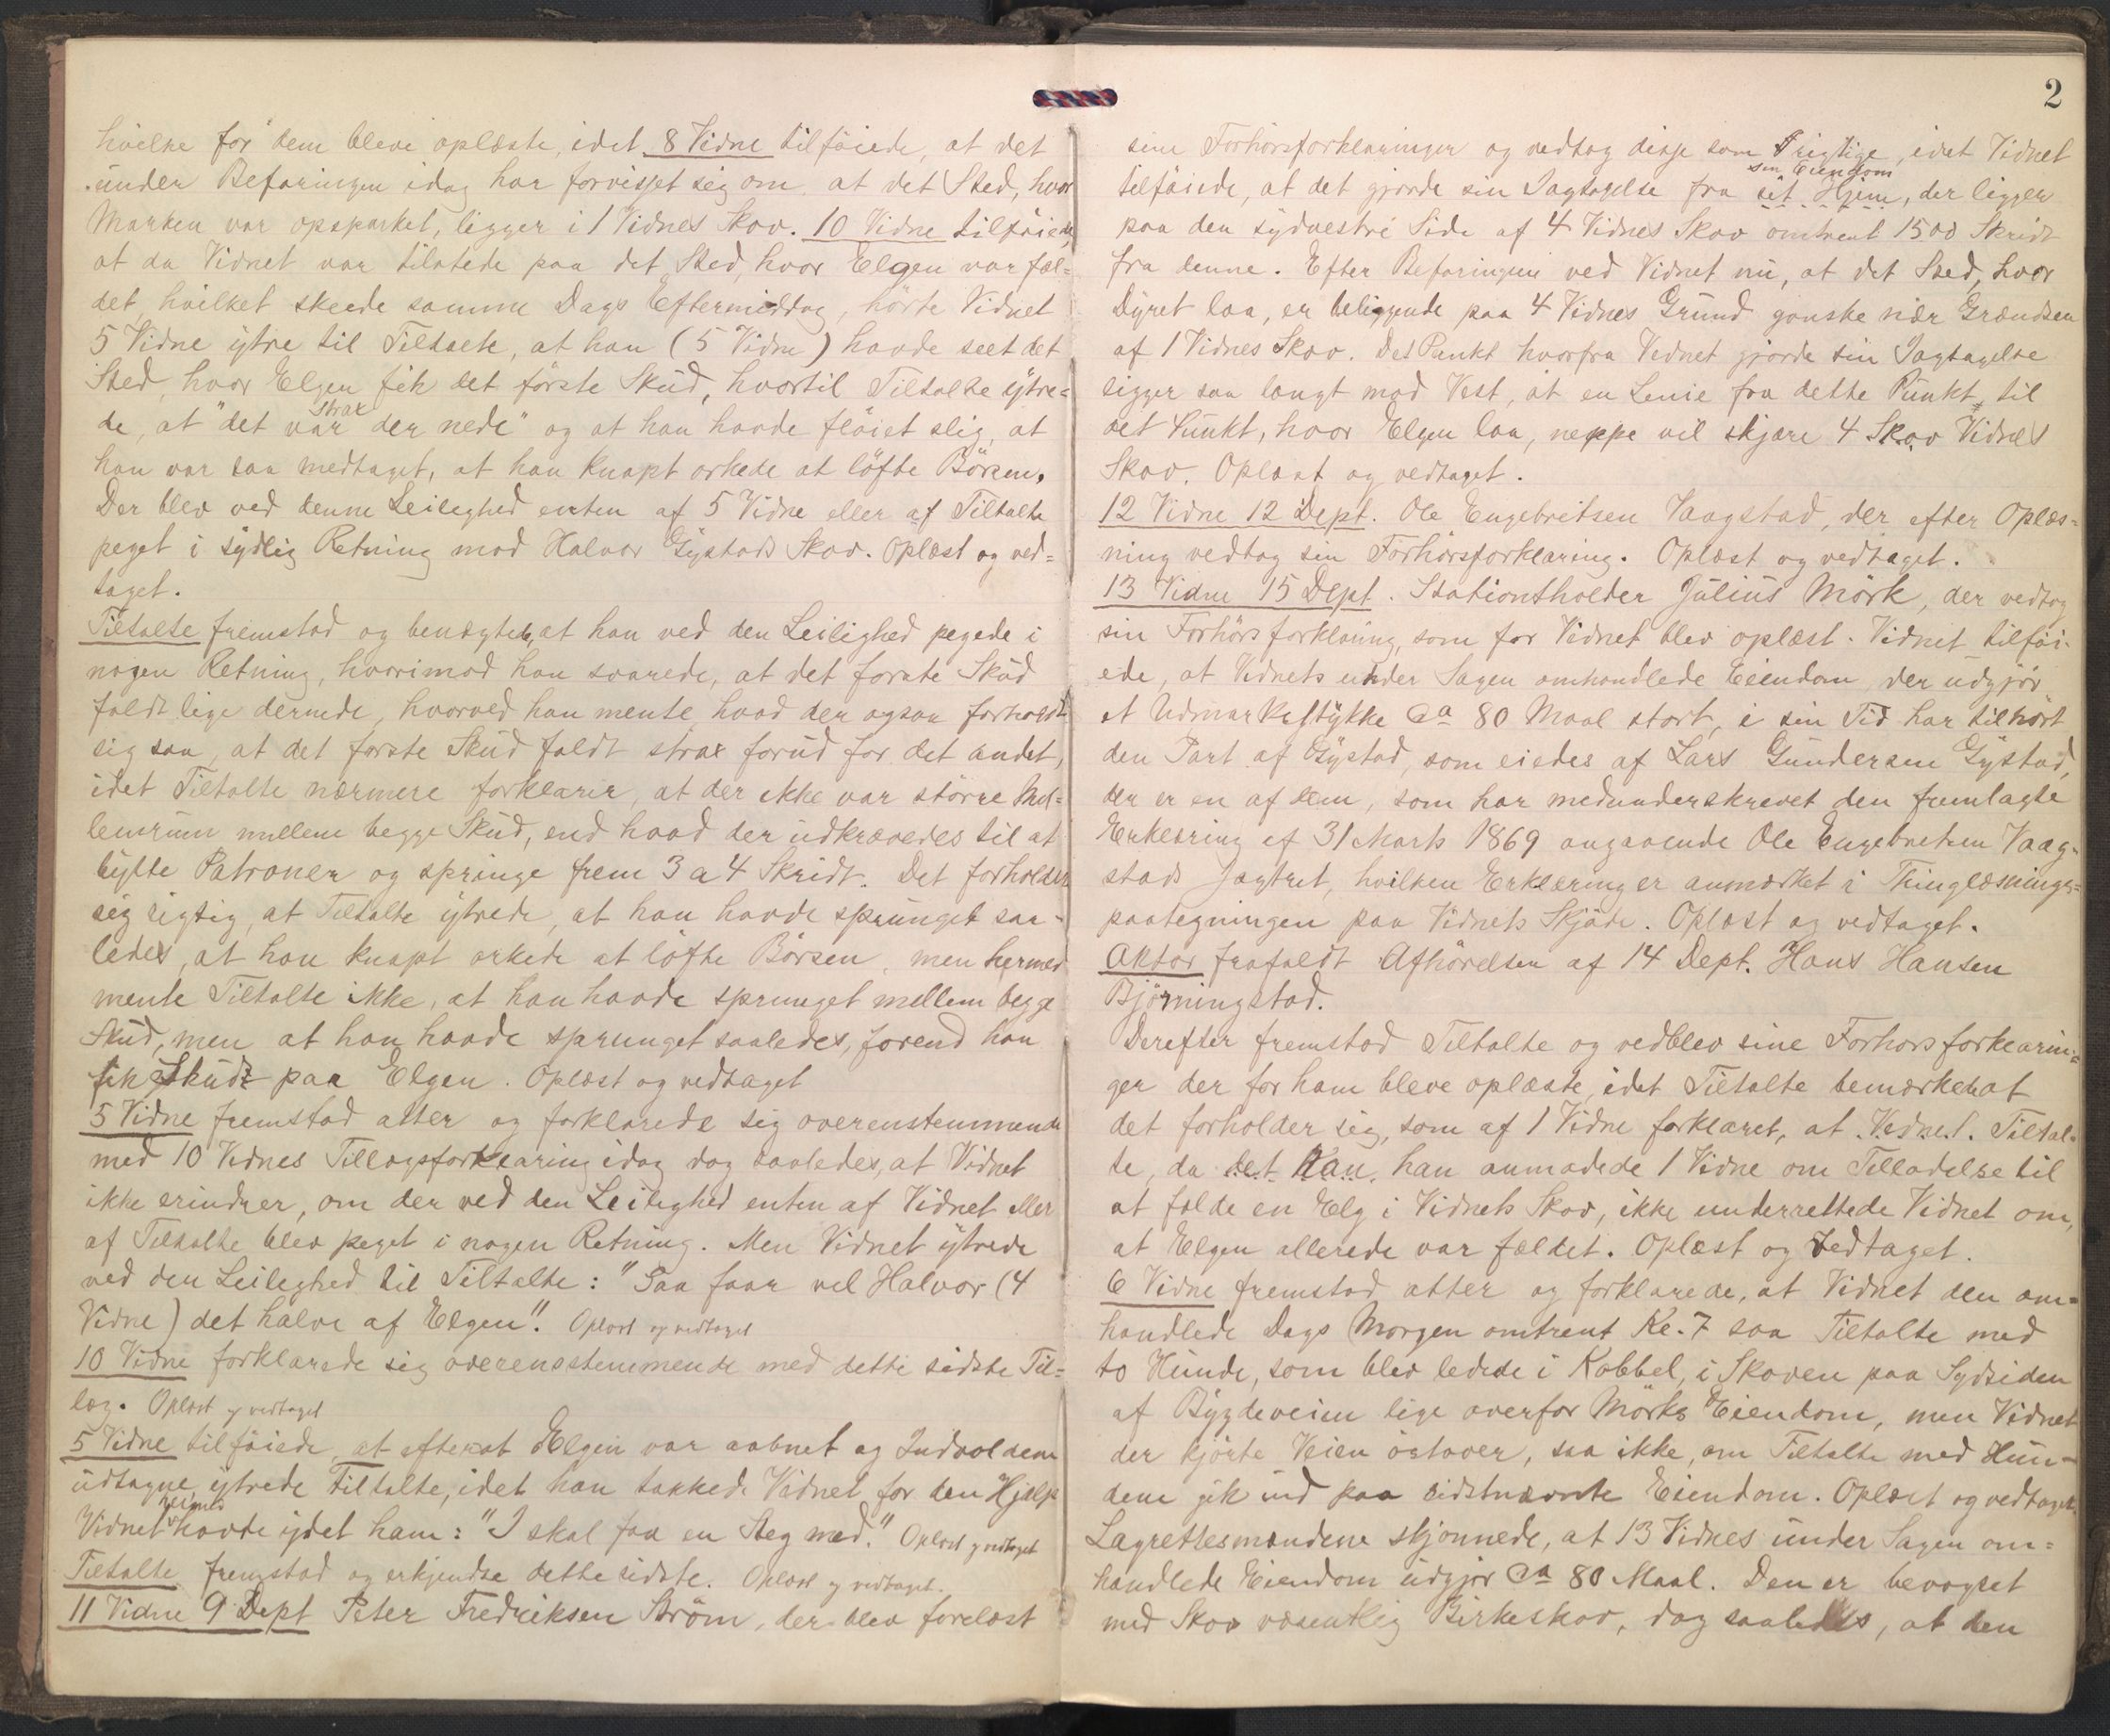 hvilke for dem bleve oplæste, idet 8 Vidne tilføiede, at det
under Befaringen idag har forvisset sig om at det Sted, hvor
Marken var opsparket, ligger i 1 Vidnes Skov. 10 Vidne tilføiede,
at da Vidnet var tilstede paa det Sted, hvor Elgen var fæl=
det, hvilket skeede samme Dags Eftermiddag, hørte Vidnet
5 Vidne ytre til Tiltalte, at han (5 Vidne) havde seet det
Sted, hvor Elgen fik det første Skud, hvortil Tiltalte ytre=
de, at "det var strax der nede" og at han havde fløiet slig, at
han var saa medtaget, at han knapt orkede at løfte Børsen.
Der blev ved denne Leilighed enten af 5 Vidne eller af Tiltalte
peget i sydlig Retning mod Halvor Gystads Skov. Oplæst og ved=
taget.
Tiltalte fremstod og benægtede, at han ved den Leilighed pegede i
nogen Retning, hvorimod han svarede, at det første Skud
faldt lige dernede, hvorved han mente, hvad der ogsaa forholdt
sig saa, at det første Skud faldt strax forud for det andet,
idet Tiltalte nærmere forklarer, at der ikke var større Mel=
lemrum mellem begge Skud, end hvad der udkrævedes til at
bytte Patroner og springe frem 3 a 4 Skridt. Det forholder
sig rigtig, at Tiltalte ytrede, at han havde sprunget saa=
ledes, at han knapt orkede at løfte Børsen, men hermed
mente Tiltalte ikke, at han havde sprunget mellem begge
Skud, men at han havde sprunget saaledes, forend han
fik Skud paa Elgen. Oplæst og vedtaget
5 Vidne fremstod atter og forklarede sig overenstemmende
med 10 Vidnes Tillægsforklaring idag dog saaledes, at Vidnet
ikke erindrer, om der ved den Leilighed enten af Vidnet eller
af Tiltalte blev peget i nogen Retning. Men Vidnet ytrede
ved den Leilighed til Tiltalte: "Saa faar vel Halvor (4
Vidne) det halve af Elgen". Oplæst og vedtaget
10 Vidne forklarede sig overensstemmende med dette sidste Til=
læg. Oplæst og vedtaget
5 Vidne tilføiede, at efterat Elgen var aabnet og Indvoldene
udtagne, ytrede Tiltalte, idet han takkede Vidnet for den Hjælp
Vidnet havde ydet ham: "I skal faa en Steg med." Oplæst og vedtaget
Tiltalte fremstod og erkjendte dette sidste. Oplæst og vedtaget.
11 Vidne 9 Dept Peter Fredriksen Strøm, der blev forelæst
2
sine Forhørsforklaringer og vedtog disse som rigtige, idet Vidnet
sin Eiendom
tilføiede, at det gjorde sin Iagtagelse fra sit Hjem, der ligger
paa den sydvestre Side af 4 Vidnes Skov omtrent 1500 Skridt
fra denne. Efter Befaringen ved Vidnet nu, at det Sted, hvor
Dyret laa, er beliggende paa 4 Vidnes Grund ganske nær Grændsen
af 1 Vidnes Skov. Det Punkt hvorfra Vidnet gjorde sin Iagtagelse
ligger saa langt mod Vest, at en Linie fra dette Punkt, til
det Punkt, hvor Elgen laa, neppe vil skjære 4 Skov Vidnes
Skov. Oplæst og vedtaget.
12 Vidne 12 Dept. Ole Engebretsen Vaagstad, der efter Oplæs=
ning vedtog sin Forhørsforklaring. Oplæst og vedtaget.
13 Vidne 15 Dept. Stationsholder Julius Mørk, der vedtog
sin Forhørsforklaring, som for Vidnet blev oplæst. Vidnet tilføi=
ede, at Vidnets under Sagen omhandlede Eiendom, der udgjør
et Udmarkstykke Ca 80 Maal stort, i sin Tid har tilhørt
den Part af Gystad, som eiedes af Lars Gundersen Gystad,
der er en af dem, som har medunderskrevet den fremlagte
Erklæring af 31 Marts 1869 angaaende Ole Engebretsen Vaag=
stads Jagtret, hvilken Erklæring er anmærket i Thinglæsnings=
paategningen paa Vidnets Skjøde. Oplæst og vedtaget.
Aktor frafaldt Afhørelsen af 14 Dept. Hans Hansen
Bjørningstad.
Derefter fremstod Tiltalte og vedblev sine Forhørsforklarin=
ger der for ham bleve oplæste, idet Tiltalte bemærkede at
det forholder sig, som af 1 Vidne forklaret, at Vidnet Tiltal=
te, da det han han anmodede 1 Vidne om Tilladelse til
at fælde en Elg i Vidnets Skov, ikke underrettede Vidnet om,
at Elgen allerede var fældet. Oplæst og vedtaget.
6 Vidne fremstod atter og forklarede, at Vidnet den om=
handlede Dags Morgen omtrent Kl. 7 saa Tiltalte med
to Hunde, som blev ledede i Kobbel, i Skoven paa Sydsiden
af Bygdeveien lige overfor Mørks Eiendom, men Vidnet
der kjørte Veien østover, saa ikke, om Tiltalte med Hun=
dene gik ind paa sidstnævnte Eiendom. Oplæst og vedtaget.
Lagrettesmændene skjønnede, at 13 Vidnes under Sagen om=
handlede Eiendom udgjør Ca 80 Maal. Den er bevoxet
med Skov væsentlig Birkeskov, dog saaledes, at den